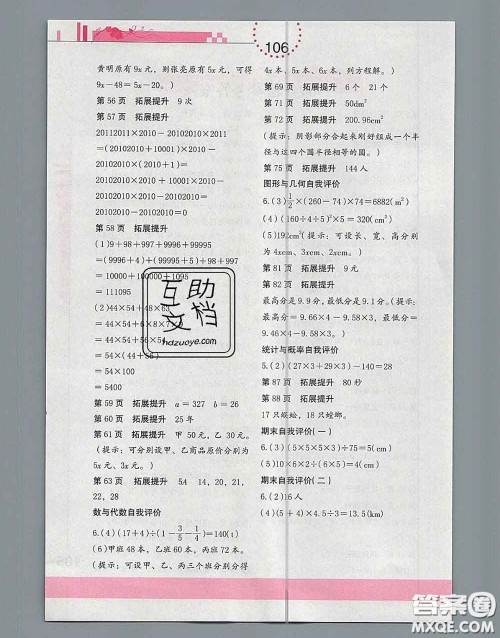 106
黄明原有9x元，则张亮原有5x元，可得
9x－48＝5x－20。）
第56页 拓展提升 9次
第57页 拓展提升
20112011×2010－20102010×2011
＝(20102010＋10001)×2010－
20102010×(2010＋1)＝
20102010×2010＋10001×2010－
20102010×2010－20102010＝
20102010－20102010＝0
第58页 拓展提升
(1)9＋98＋997＋9996＋99995
＝(9996＋4)＋(99995＋5)＋(9＋98＋
997)＝
10000＋100000＋1095
＝111095
(2)44×54＋48×
＝44×54＋6×8×7×
＝44×54＋56×54
＝54×(44＋56)
＝54×100
＝5400
第59页 拓展提升 a＝327 b＝26
第60页 拓展提升 25年
第61页 拓展提升 甲50元，乙30元。
(提示：可分别设甲、乙商品原价分别为
5x元、3x元。）
第63页 拓展提升 54 14，20，21，
22，28
数与代数自我评价
6.(4)(17＋4)÷(1－3/5－1/4)＝140(t)
(6)甲班48本，乙班60本，丙班72本。
(提示：可设甲、乙、丙三个班分别分得
4x本、5x本、6x本，列方程解。）
第69页 拓展提升 6个 21个
第71页 拓展提升 50dm²
第72页 拓展提升 200.96cm²
(提示：阴影部分合起来刚好组成一个半
径与这四个圆半径相等的圆。）
第75页 拓展提升 144人
图形与几何自我评价
6.(3)1/2×(260－74)×74＝6882(m²)
(4)(160÷4÷5²)×5＝320(cm²)
(5)192cm²(提示：可设长、宽、高分别
为4xcm、3xcm、2xcm。）
第81页 拓展提升 9元
第82页 拓展提升
最高分是9.9分，最低分是9.1分。(提
示：最高分＝9.66×4－9.58×3，最低分＝
9.46×4－9.58×3。）
统计与概率自我评价
5.(2)(27×3＋29×3)－140＝28
第87页 拓展提升 80秒
第88页 拓展提升
17只蜈蚣，18只螳螂。
期末自我评价(一)
6.(3)(5×5×5×3)÷75＝5(cm)
(5)10×6×2÷(6×5)＝4(cm)
期末自我评价(二)
6.(2)16人
(4)(5＋4)×4.5÷3＝13.5(km)
互助
文档
hdzuoye.com
答案圈
MXQE.COM